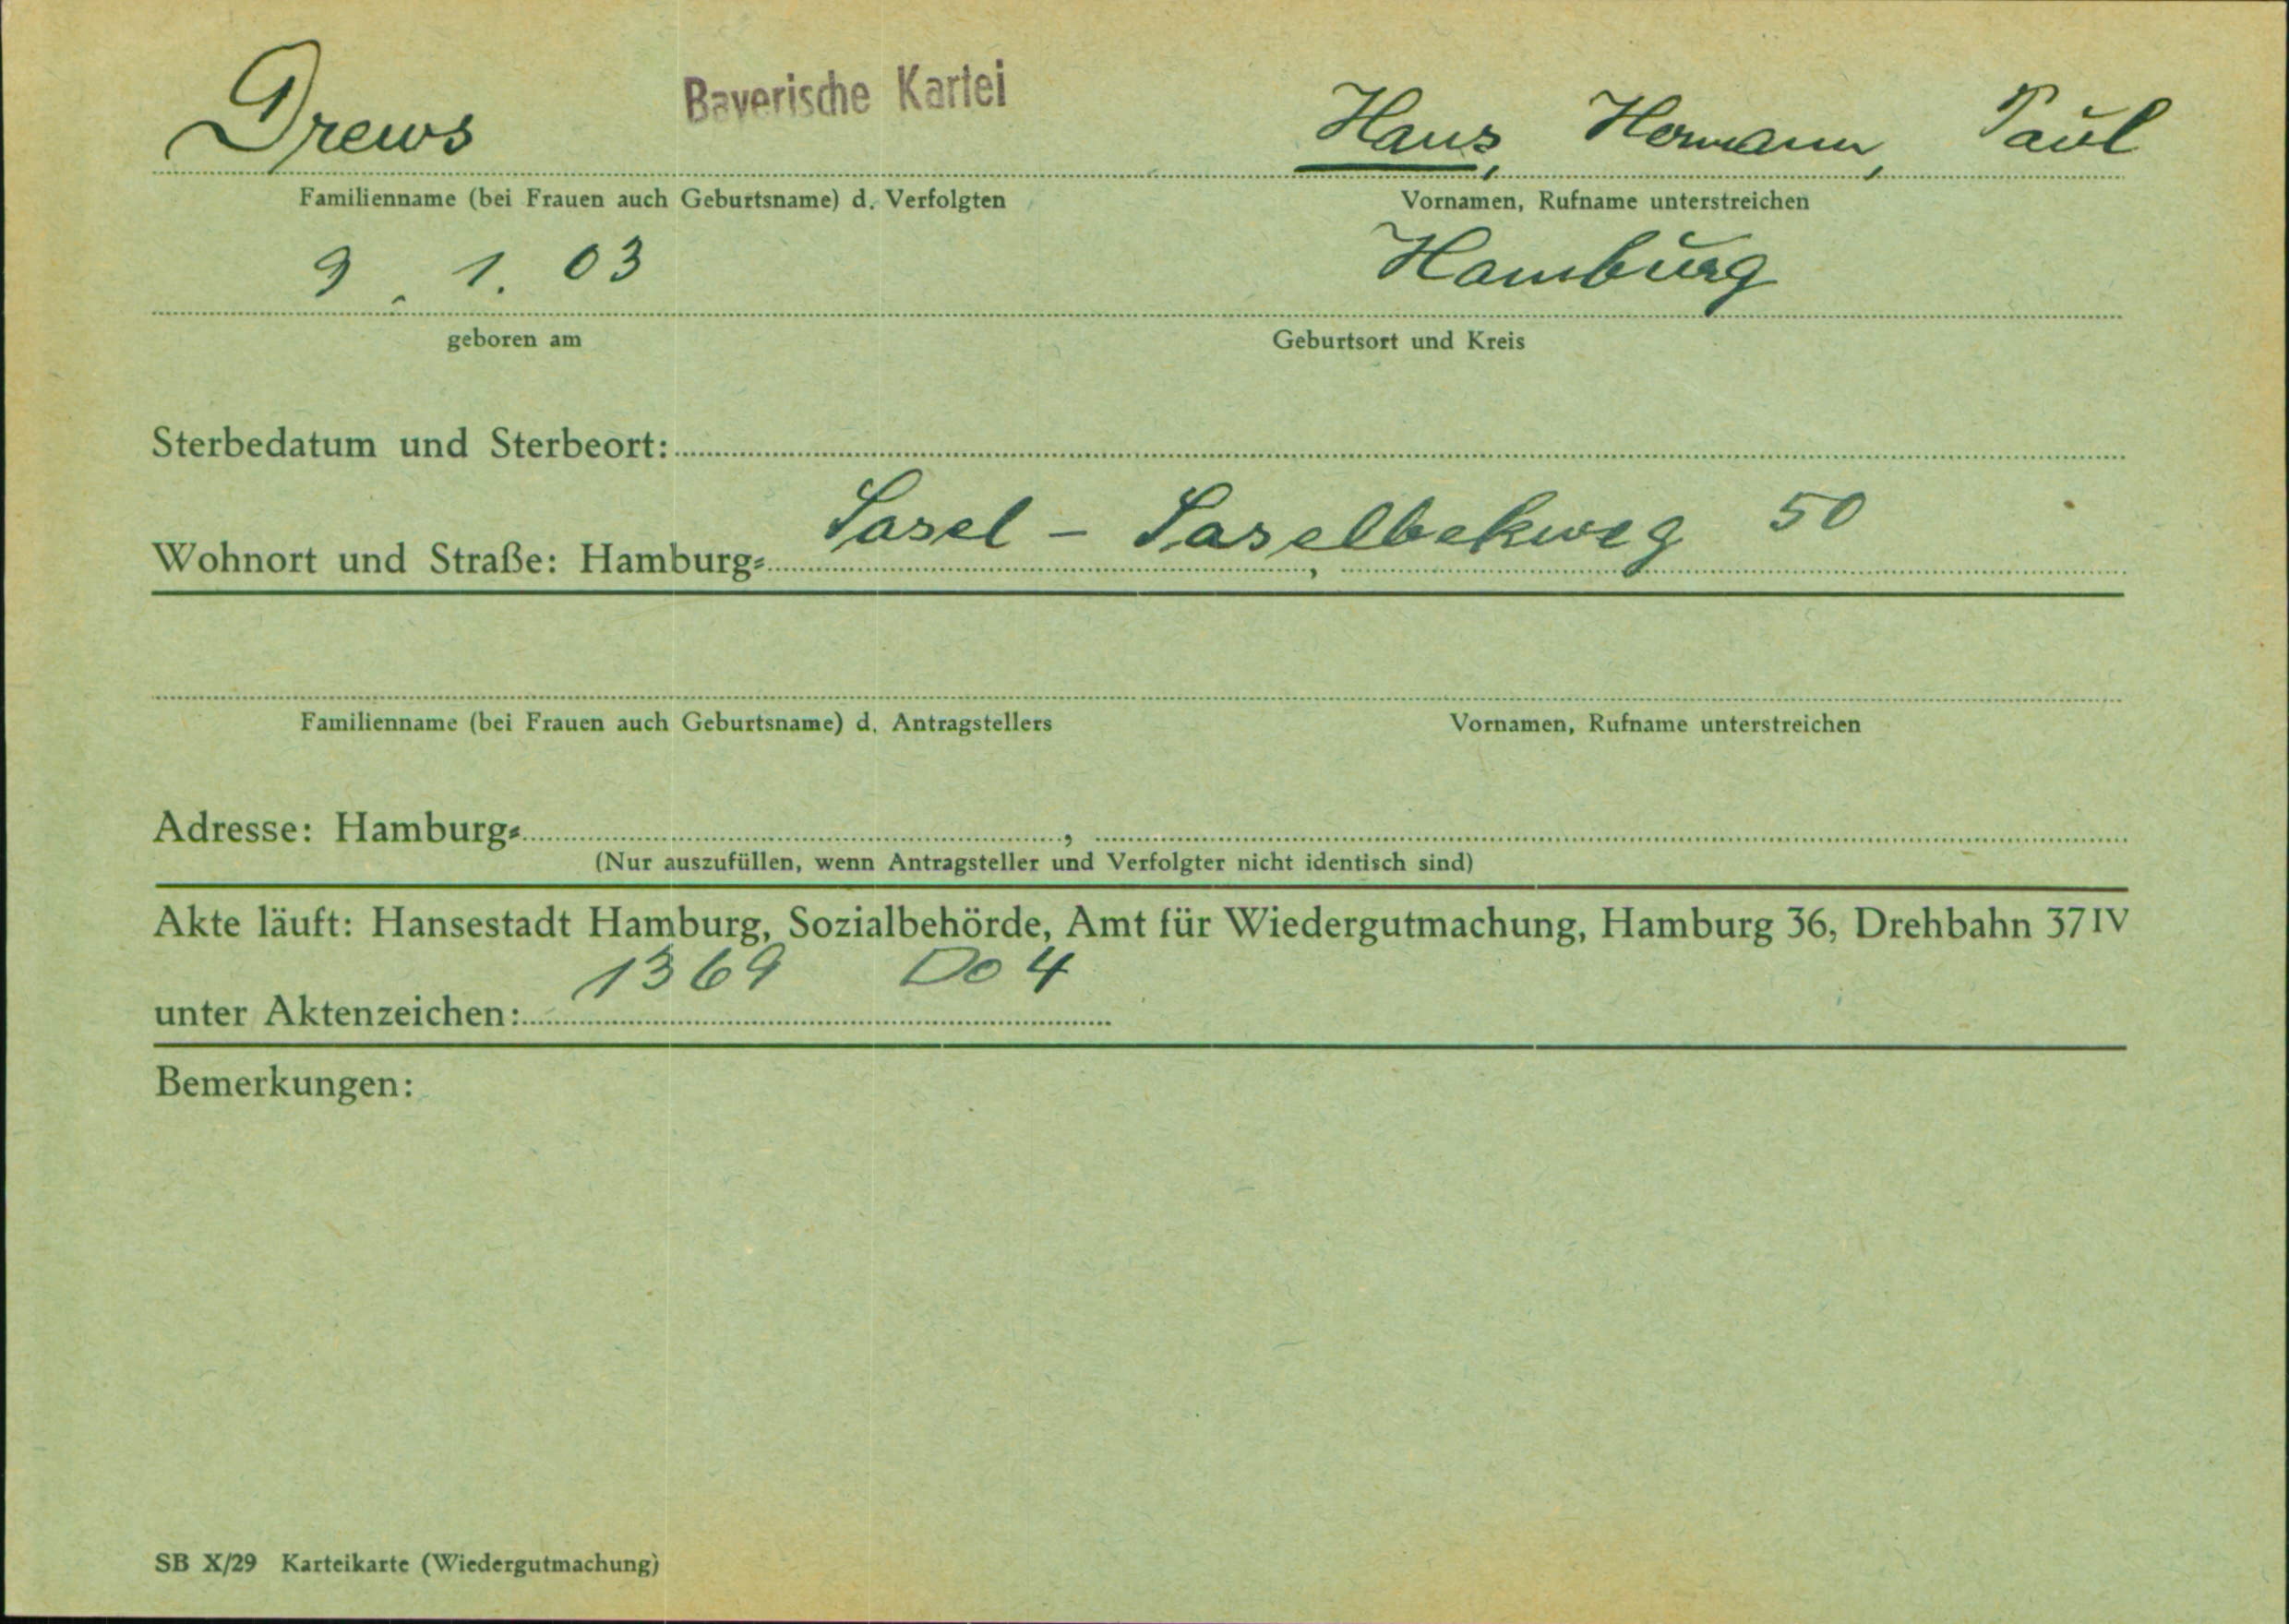 Drews Bayerische Kartei Hans, Hermann, Paul
Familienname (bei Frauen auch Geburtsname) d. Verfolgten Vornamen, Rufname unterstreichen
9. 1. 03 Hamburg
geboren am Geburtsort und Kreis
Sterbedatum und Sterbeort:
Wohnort und Straße: Hamburg- Sasel - Saselbekweg 50
Familienname (bei Frauen auch Geburtsname) d. Antragstellers Vornamen, Rufname unterstreichen
Adresse: Hamburg- ,
(Nur auszufüllen, wenn Antragsteller und Verfolgter nicht identisch sind)
Akte läuft: Hansestadt Hamburg, Sozialbehörde, Amt für Wiedergutmachung, Hamburg 36, Drehbahn 37 IV
unter Aktenzeichen: 1369 Do 4
Bemerkungen:
SB X/29 Karteikarte (Wiedergutmachung)